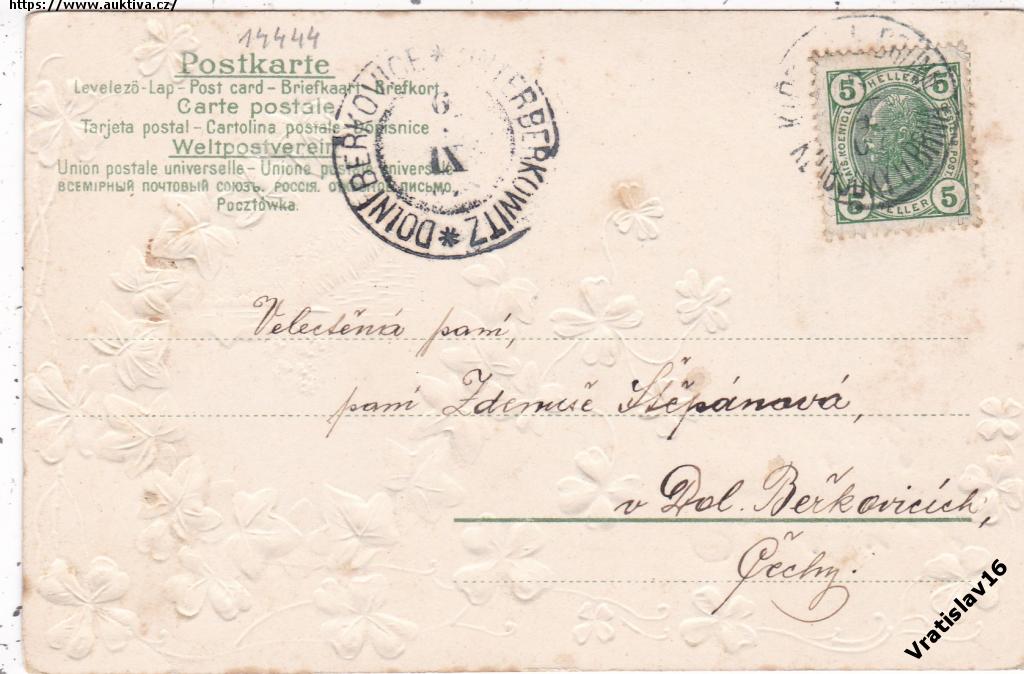 https://www.auktiva.cz/
14444
Postkarte
Levelező-Lap - Post card - Briefkaart - Brefkort
Carte postale
Tarjeta postal - Cartolina postale - Dopisnice
Weltpostverein
Union postale universelle - Unione postale universale
ВСЕМІРНЫЙ ПОЧТОВЫЙ СОЮЗЪ. РОССІЯ. ОТКРЫТОЕ ПИСЬМО.
Pocztówka.
DOLNÍ BERKOVICE * UNTERBERKOWITZ *
9
IV
5 HELLER 5
5 HELLER 5
Velectěná paní,
paní Zdenuše Štěpánová,
v Dol. Beřkovicích,
Čechy.
Vratislav16